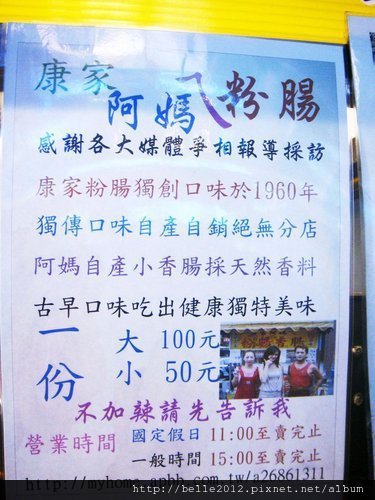 康家阿媽ㄟ粉腸
感謝各大媒體爭相報導採訪
康家粉腸獨創口味於1960年
獨傳口味自產自銷絕無分店
阿媽自產小香腸採天然香料
古早口味吃出健康獨特美味
一份
大 100元
小 50元
不加辣請先告訴我
營業時間
國定假日 11:00至賣完止
一般時間 15:00至賣完止
tw/a26861311
http://belle2012.pixnet.net/album